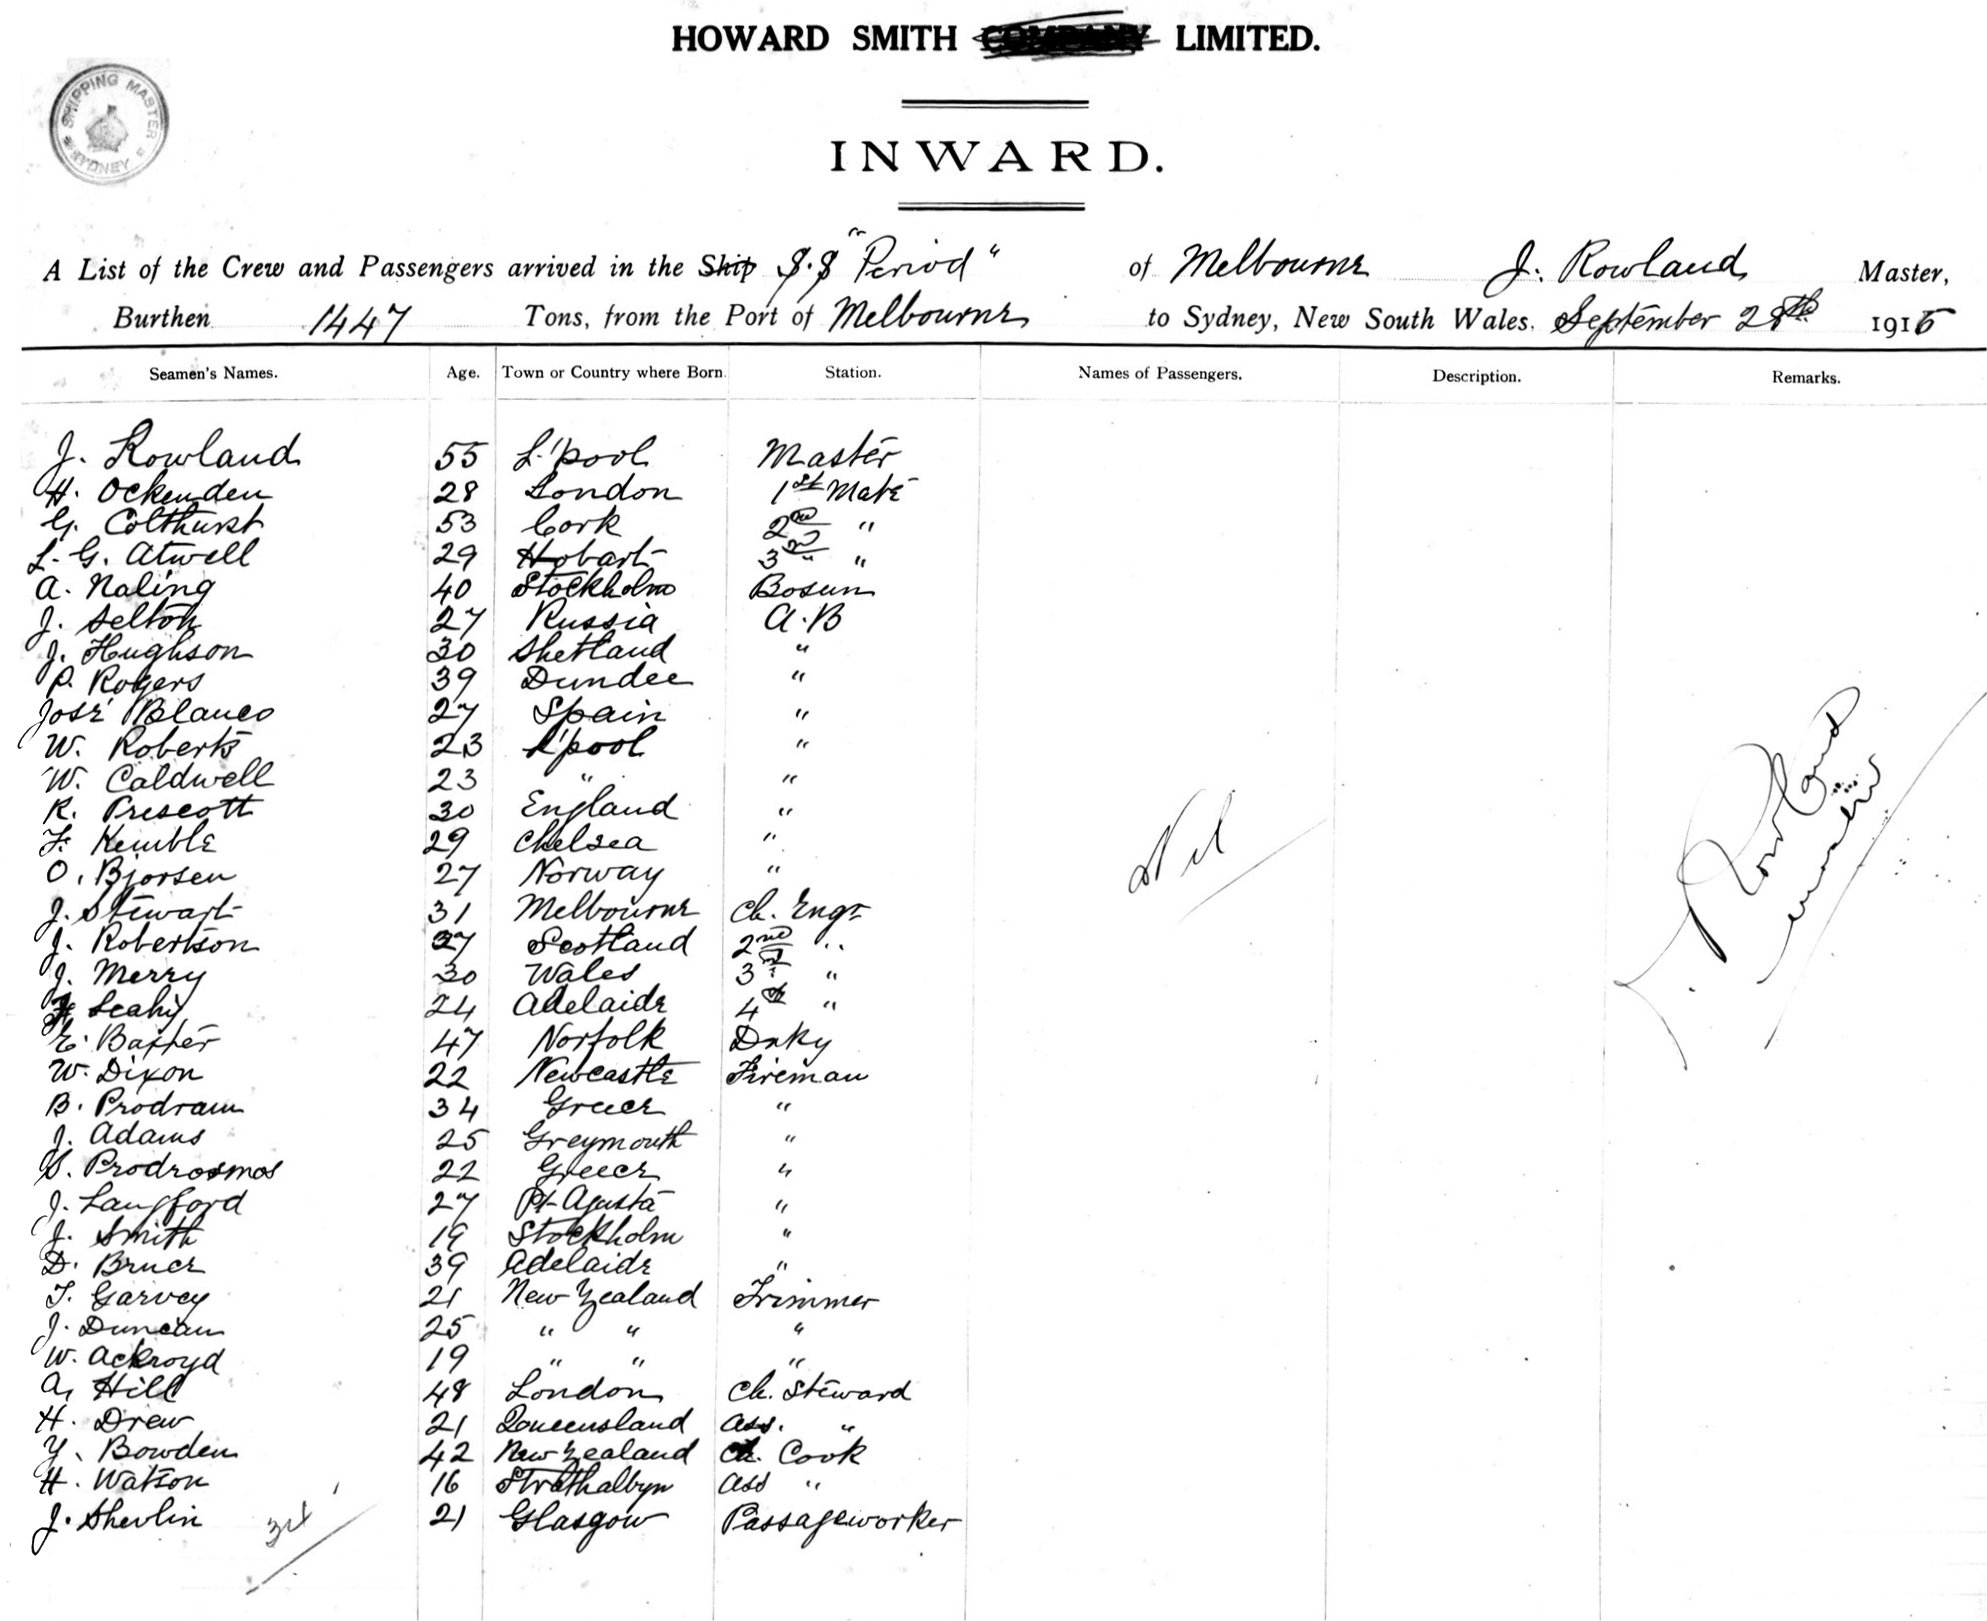 HOWARD SMITH COMPANY LIMITED.
SHIPPING MASTER
SYDNEY
INWARD.
A List of the Crew and Passengers arrived in the Ship S.S "Period" of Melbourne J. Rowland Master,
Burthen 1447 Tons, from the Port of Melbourne to Sydney, New South Wales. September 28th 1915
Seamen's Names. Age. Town or Country where Born. Station. Names of Passengers. Description. Remarks.
J. Rowland 55 L'pool Master
H. Ockenden 28 London 1st Mate
G. Colthurst 53 Cork 2nd "
L. G. Atwell 29 Hobart 3rd "
A. Naling 40 Stockholm Bosun
J. Selton 27 Russia A.B
J. Hughson 30 Shetland "
P. Rogers 39 Dundee "
José Blanco 27 Spain "
W. Roberts 23 L'pool "
W. Caldwell 23 " "
R. Prescott 30 England "
F. Kemble 29 Chelsea "
O. Bjorsen 27 Norway "
Nil
J. Rowland
master
J. Stewart 31 Melbourne Ch. Engr
J. Robertson 37 Scotland 2nd "
J. Merry 30 Wales 3rd "
Leahy 24 Adelaide 4th "
E. Baxter 47 Norfolk Dnky
W. Dixon 22 Newcastle Fireman
B. Prodram 34 Greece "
J. Adams 25 Greymouth "
S. Prodrosmos 22 Greece "
J. Langford 27 Pt Agusta "
J. Smith 19 Stockholm "
D. Bruce 39 Adelaide "
T. Garvey 21 New Zealand Trimmer
J. Duncan 25 " " "
W. Ackroyd 19 " " "
A. Hill 48 London Ch. Steward
H. Drew 21 Queensland Ass. "
Y. Bowden 42 New Zealand Ch. Cook
H. Watson 16 Strathalbyn Ass "
J. Shevlin 21 Glasgow Passageworker
34